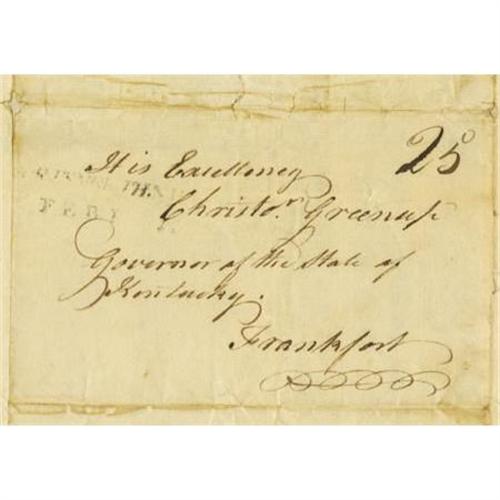 25
It is Excellency
Christo.r Greenup
Governor of the State of
Kentucky.
Frankfort